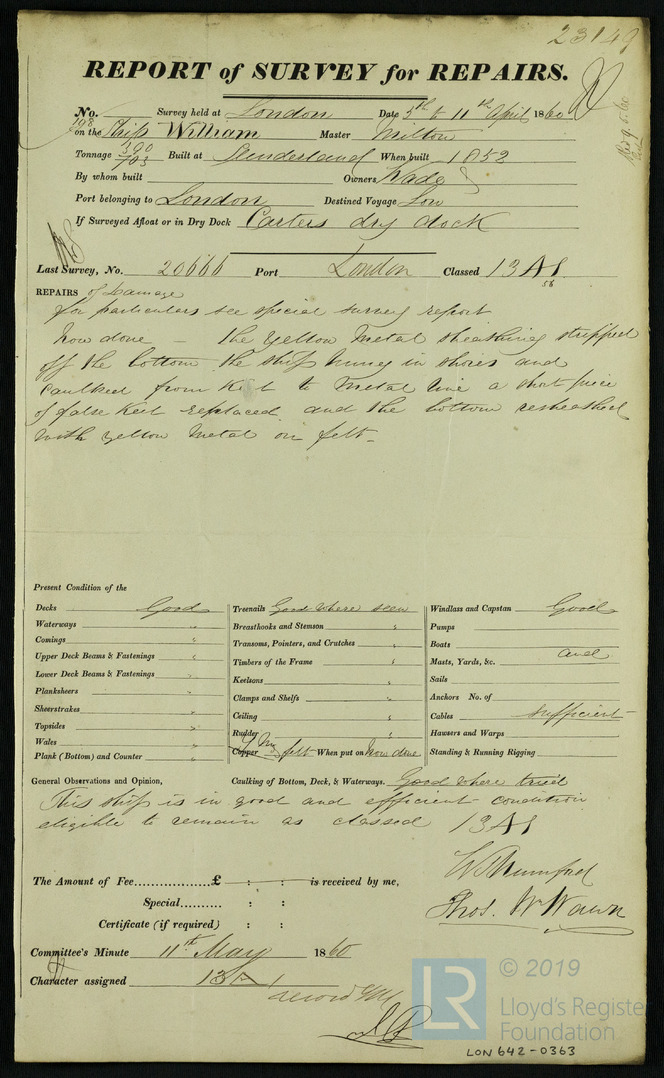 23149
REPORT of SURVEY for REPAIRS.
No. Survey held at London Date 5th to 11th April 1860
198 on the Ship William Master Milton
Tonnage 700/703 Built at Sunderland When built 1852
By whom built Owners Wade
Port belonging to London Destined Voyage Lon
If Surveyed Afloat or in Dry Dock Carters dry dock
Last Survey, No. 20666 Port London Classed 13 A1
58
REPAIRS of Damage
for particulars see special survey report
Now done – the Yellow Metal sheathing stripped
off the bottom the ship hung in shores and
caulked from Keel to Metal line a short piece
of false Keel replaced and the bottom resheathed
with yellow Metal on felt –
Present Condition of the
Decks Good
Waterways "
Comings "
Upper Deck Beams & Fastenings "
Lower Deck Beams & Fastenings "
Planksheers "
Sheerstrakes "
Topsides "
Wales "
Plank (Bottom) and Counter "
Treenails Good where seen
Breasthooks and Stemson "
Transoms, Pointers, and Crutches "
Timbers of the Frame "
Keelsons "
Clamps and Shelfs "
Ceiling "
Rudder "
Copper Y M felt When put on Now done
Windlass and Capstan Good
Pumps
Boats
Masts, Yards, &c. and
Sails
Anchors No. of
Cables sufficient
Hawsers and Warps
Standing & Running Rigging
General Observations and Opinion, Caulking of Bottom, Deck, & Waterways. Good where tried
This ship is in good and efficient condition
eligible to remain as classed 13 A1
W Mumford
Thos. W Wawn
The Amount of Fee £ : : is received by me,
Special : :
Certificate (if required) : :
Committee's Minute 11th May 1860
Character assigned 13 A 1
LR © 2019
Lloyd's Register
Foundation
LON 642-0363